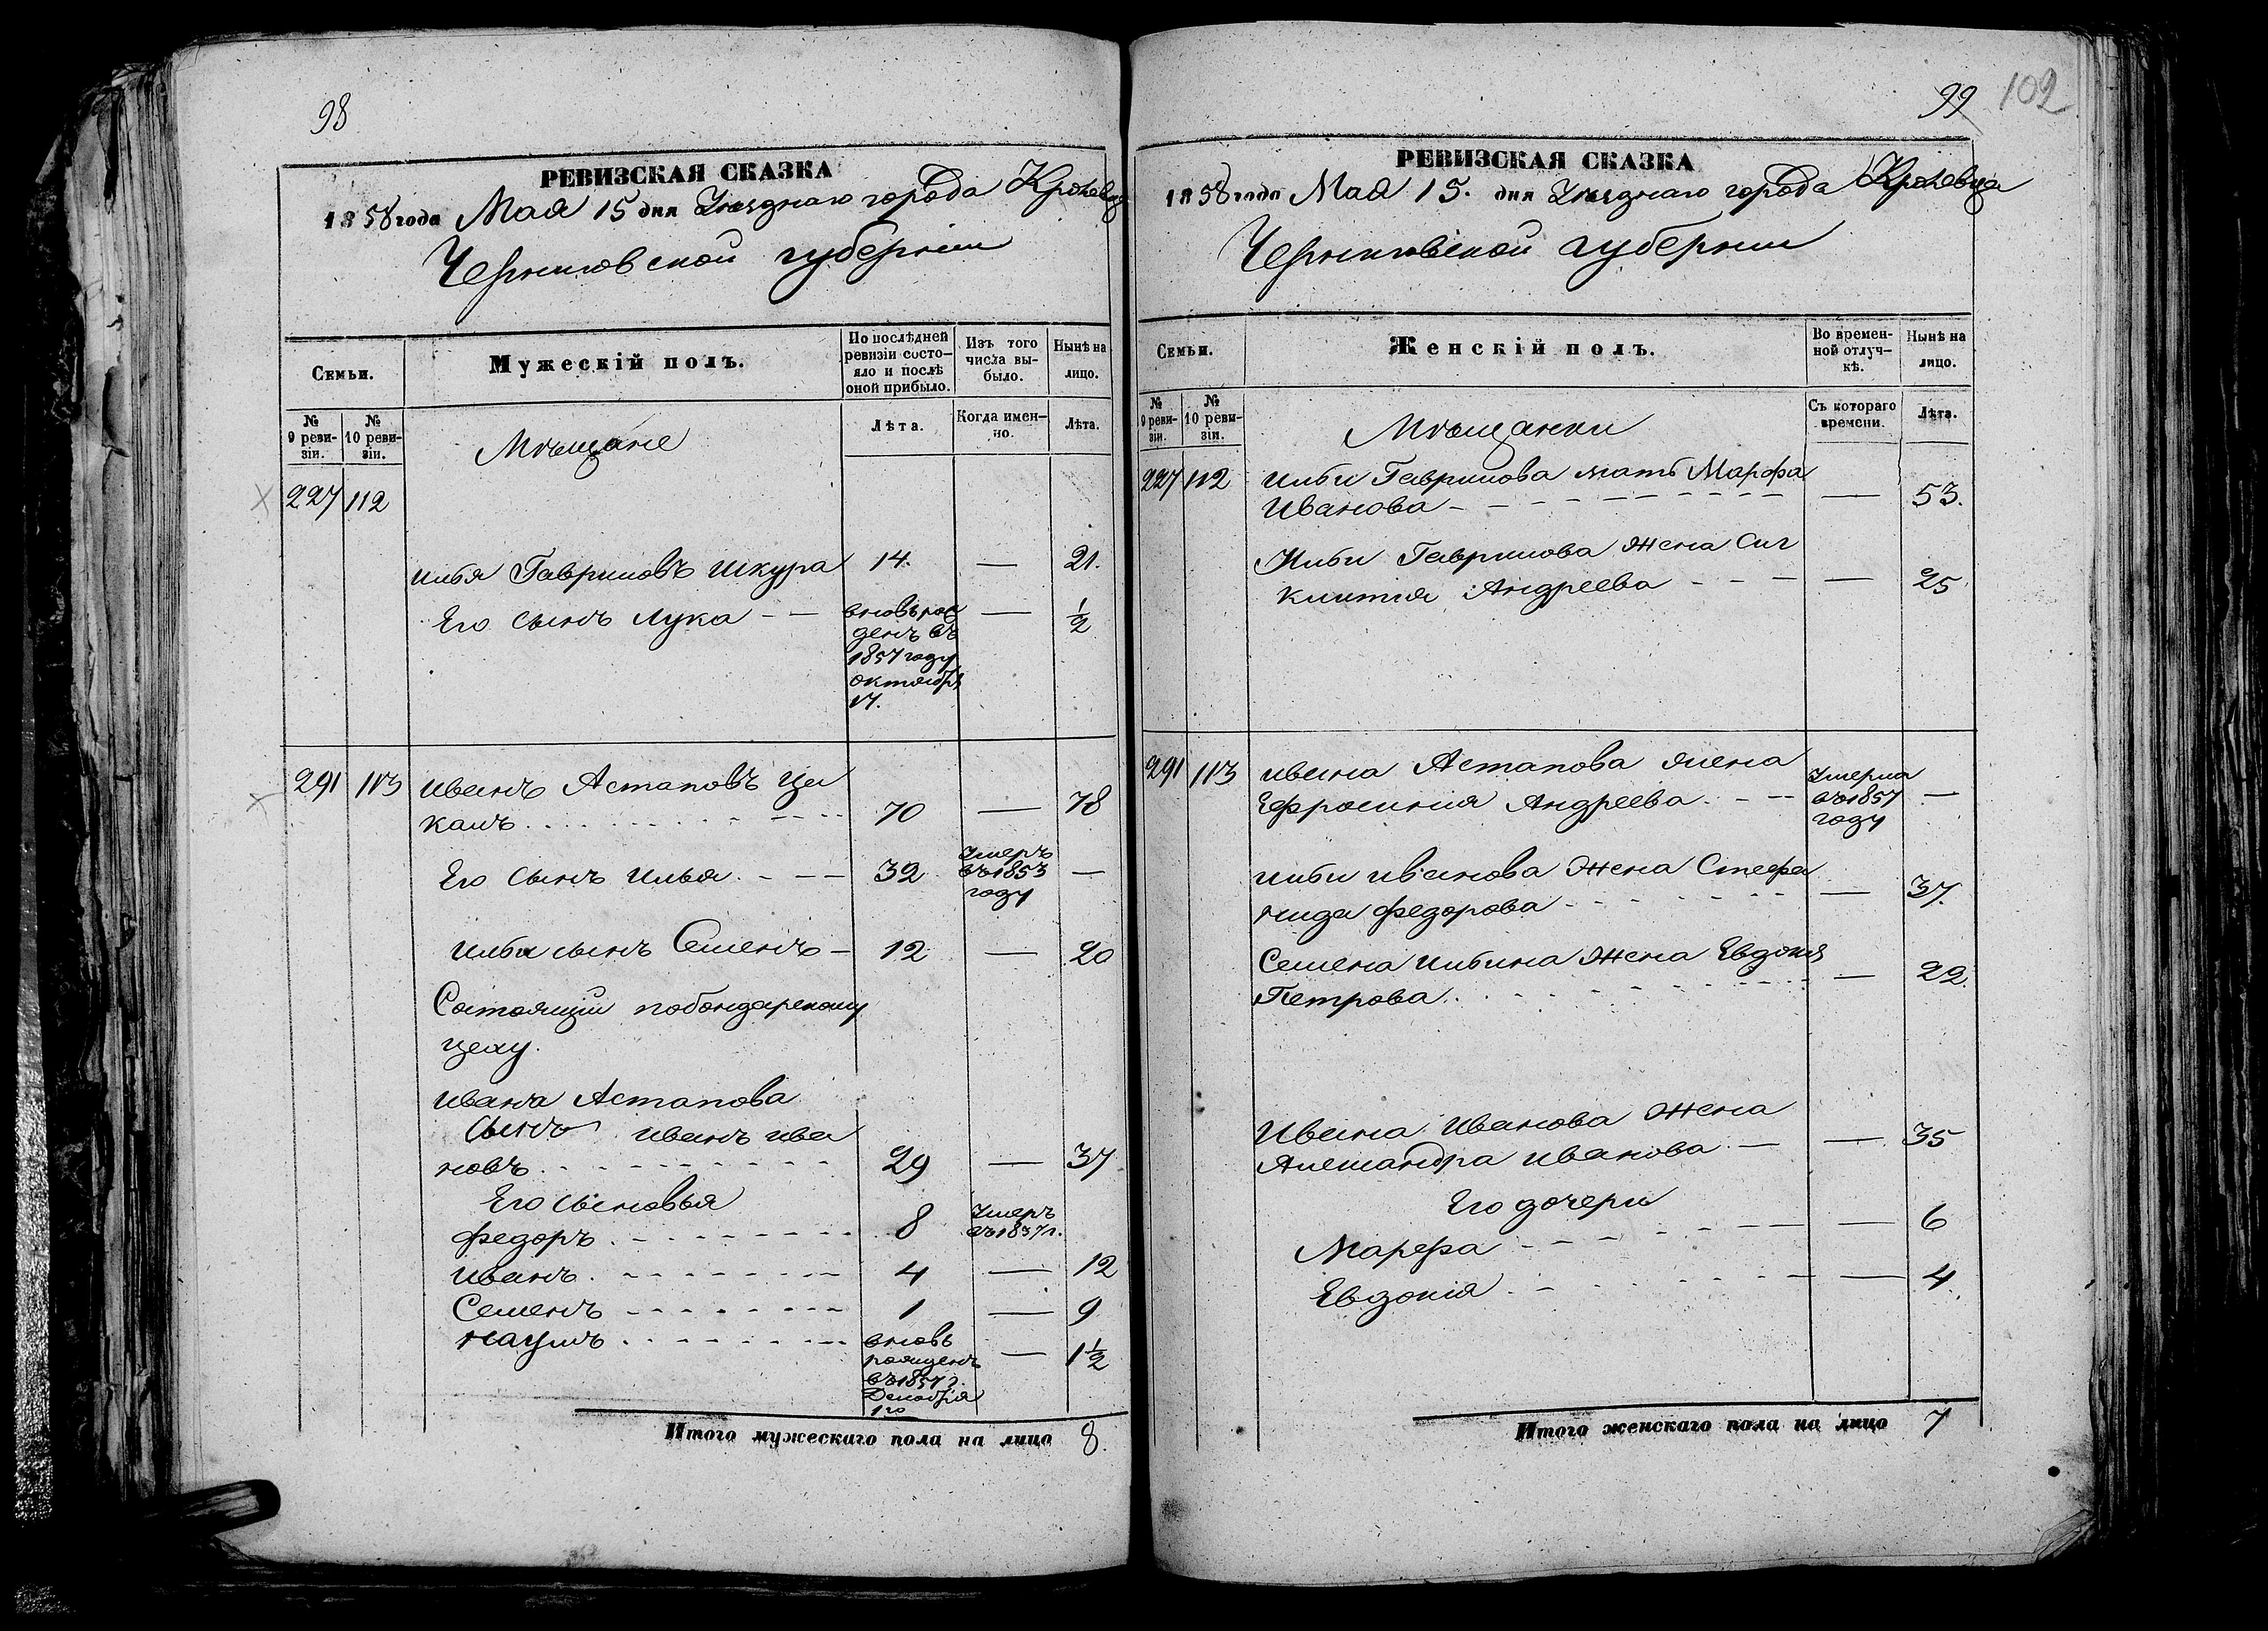 98
РЕВИЗСКАЯ СКАЗКА
1858 года Мая 15 дня Уезднаго города Кролевца
Черниговской губернии
Семьи.
Мужескій полъ.
По послѣдней ревизіи состо-
яло и послѣ оной прибыло.
Изъ того числа вы-
было.
Нынѣ на лицо.
№ 9 реви-
зіи.
№ 10 реви-
зіи.
Мѣщане
Лѣта.
Когда имен-
но.
Лѣта.
227 112
Илья Гавриловъ Шкура 14. — 21.
Его сынъ Лука — — вновь рож
денъ въ
1857 году
октября
17.
— 1/2
291 113 Иванъ Астаповъ Ца
канъ 70 — 78
Его сынъ Илья 32 Умеръ
въ 1853
году —
Ильи сынъ Семенъ — 12 — 20
Состоящій по бондарскому
цеху.
Ивана Астапова
Сынъ Иванъ Ива
новъ 29 — 37
Его сыновья
Федоръ 8 Умеръ
въ 1857 г.
Иванъ 4 — 12
Семенъ 1 — 9
Наумъ вновь
рожденъ
въ 1857 г.
Декабря
1го
— 1 1/2
Итого мужескаго пола на лицо 8.
99 102
РЕВИЗСКАЯ СКАЗКА
1858 года Мая 15. дня Уезднаго города Кролевца
Черниговской губернии
Семьи.
Женскій полъ.
Во времен-
ной отлуч-
кѣ.
Нынѣ на лицо.
№ 9 реви-
зіи.
№ 10 реви-
зіи.
Мѣщанки
Съ котораго времени.
Лѣта.
227 112 Ильи Гаврилова мать Марфа
Иванова — 53.
Ильи Гаврилова жена Сиг
клития Андреева — 25
291 113 Ивана Астапова жена
Ефросиния Андреева Умерла
въ 1857
году —
Ильи Иванова жена Стефа
нида Федорова — 37.
Семена Ильина жена Евдокия
Петрова — 22.
Ивана Иванова жена
Александра Иванова — 35
Его дочери
Марфа — 6
Евдокия — 4.
Итого женскаго пола на лицо 7